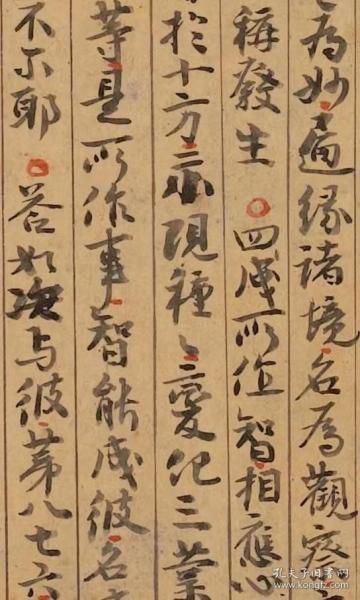 為妙遍緣諸境名為觀察
稱發生 ○ 四成所作智相應心
於十方示現種々變化三業
等是所作事智能成彼名
不尔耶 ○ 答如次与彼第八七六
孔夫子旧书网
www.kongfz.com